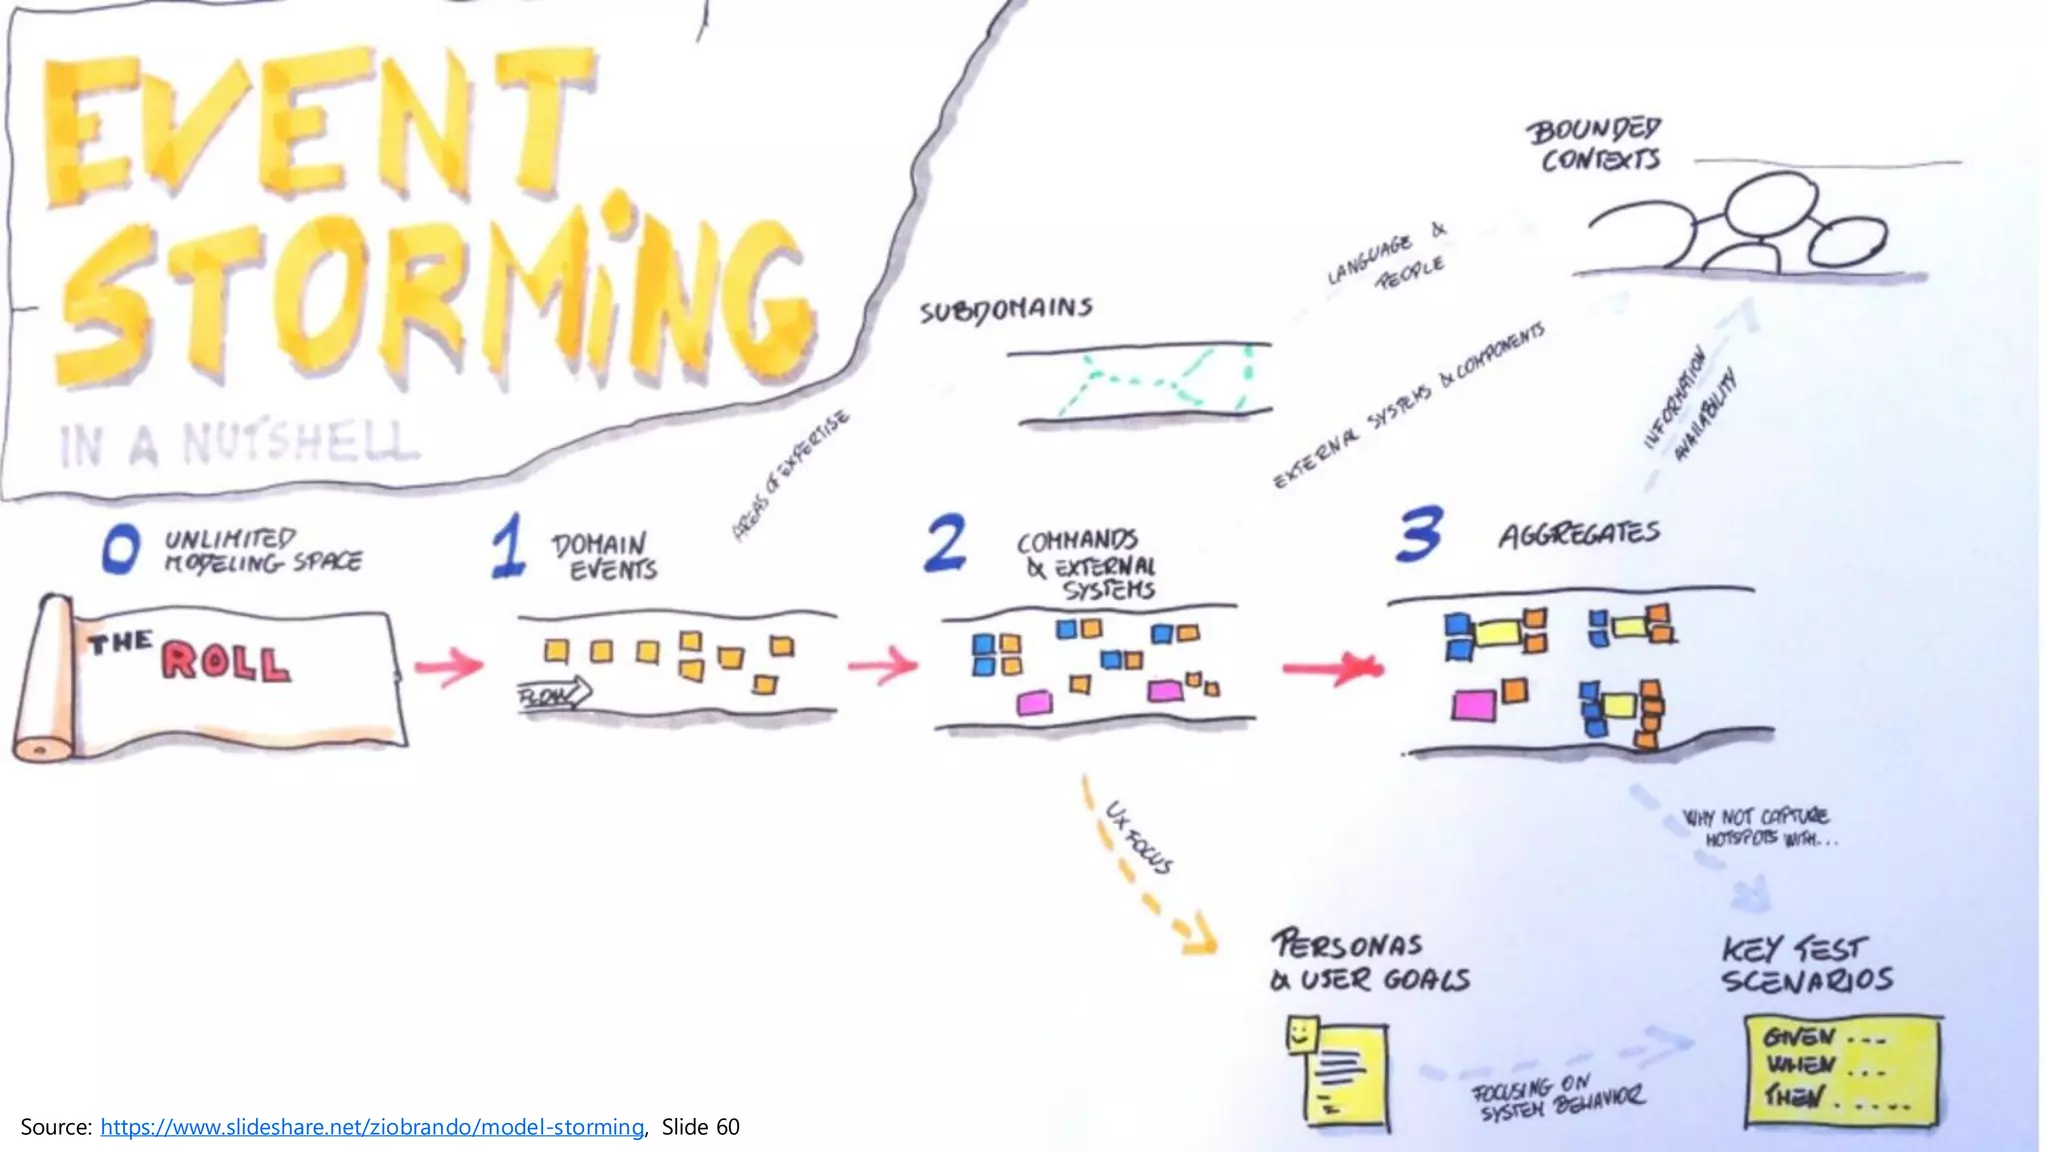 EVENT
STORMING
IN A NUTSHELL
BOUNDED
CONTEXTS
LANGUAGE &
PEOPLE
SUBDOMAINS
EXTERNAL SYSTEMS & COMPONENTS
INFORMATION
AVAILABILITY
AREAS OF EXPERTISE
0 UNLIMITED
MODELING SPACE
1 DOMAIN
EVENTS
2 COMMANDS
& EXTERNAL
SYSTEMS
3 AGGREGATES
THE ROLL
FLOW
UX FOCUS
WHY NOT CAPTURE
HOTSPOTS WITH...
PERSONAS
& USER GOALS
KEY TEST
SCENARIOS
GIVEN ...
WHEN ...
THEN .....
FOCUSING ON
SYSTEM BEHAVIOR
Source: https://www.slideshare.net/ziobrando/model-storming, Slide 60